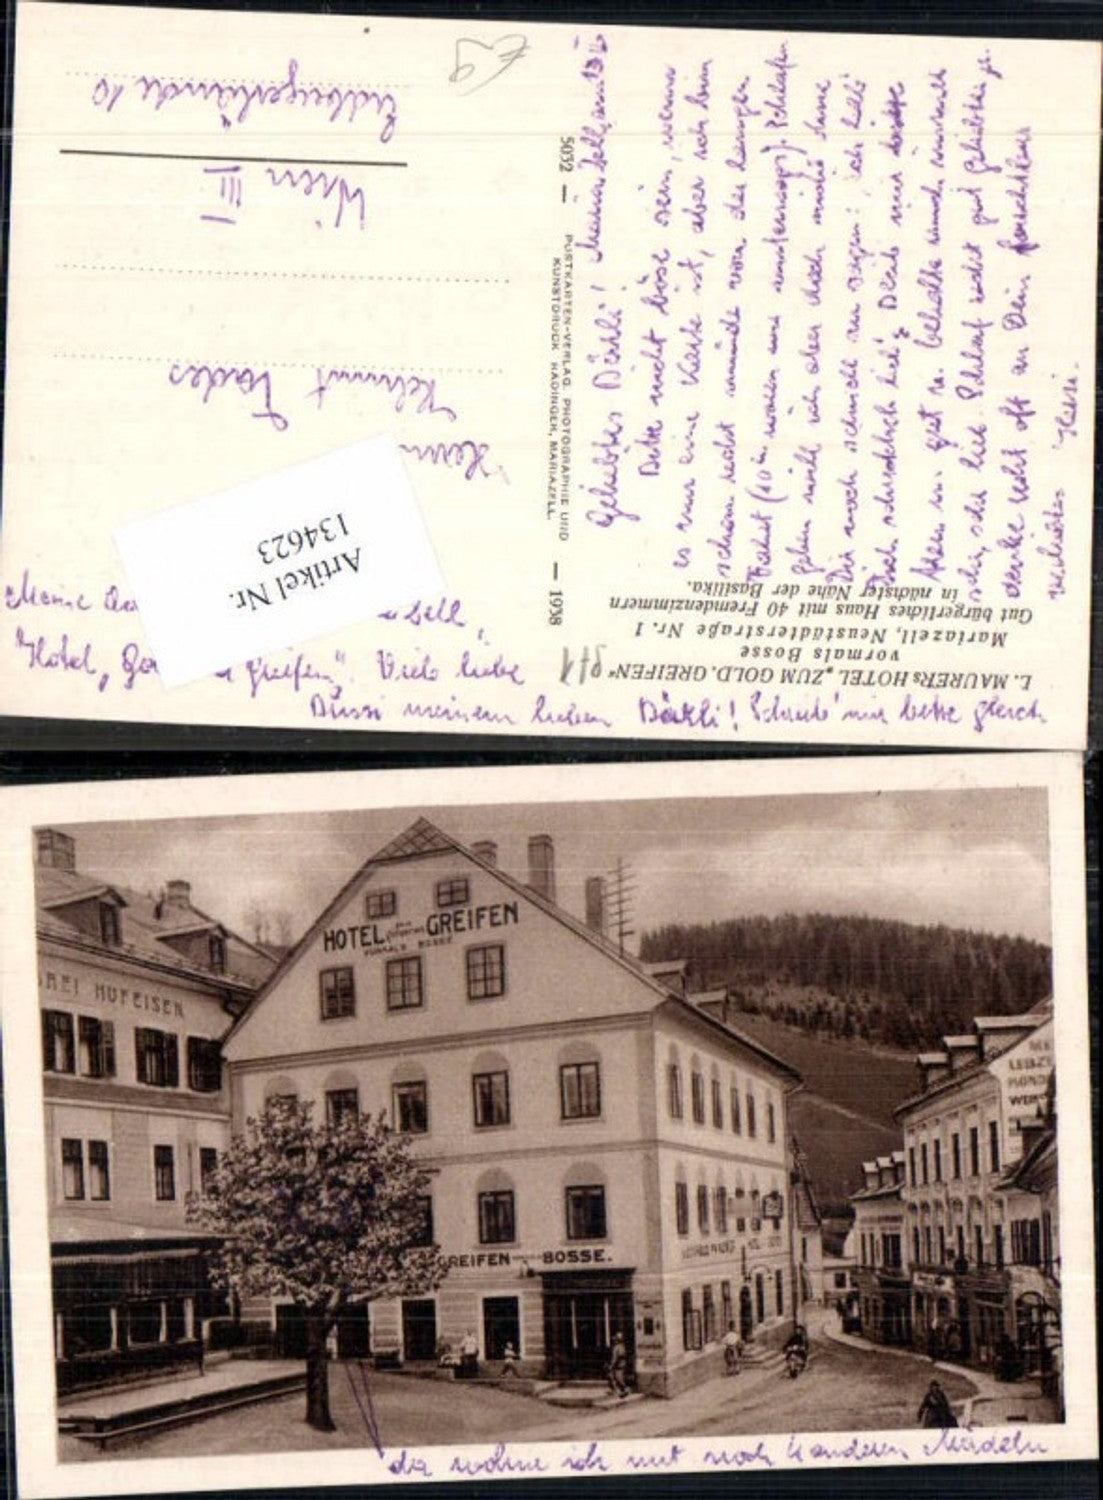 Mariazell, am 13.
Geliebtes Bärli!
Bitte nicht böse sein, wenn
es nur eine Karte ist, aber ich bin
schon recht müde von der langen
Fahrt (10 h waren wir unterwegs). Schlafen
gehen will ich aber doch nicht ohne
Dir noch schnell zu sagen: ich hab'
Dich schrecklich lieb,
behalte mich
sehr, sehr lieb. Schlaf recht gut geliebtes
denke recht oft an Dein
Hansi.
Bussi meinem lieben Bärli! Schreib' mir bitte gleich
Meine zell,
Hotel „ Greifen". Viele liebe
Herrn
Helmut
Wien III
Erdbergerlände 10
€9
Artikel Nr.
134623
L. MAURERS HOTEL „ZUM GOLD. GREIFEN"
vormals Bosse
Mariazell, Neustädterstraße Nr. 1
Gut bürgerliches Haus mit 40 Fremdenzimmern
in nächster Nähe der Basilika.
5032 — POSTKARTEN-VERLAG, PHOTOGRAPHIE UND — 1938
KUNSTDRUCK KADINGER, MARIAZELL.
HOTEL GREIFEN
VORMALS BOSSE
HUFEISEN
GREIFEN BOSSE.
da wohne ich mit noch 4 anderen Mädeln